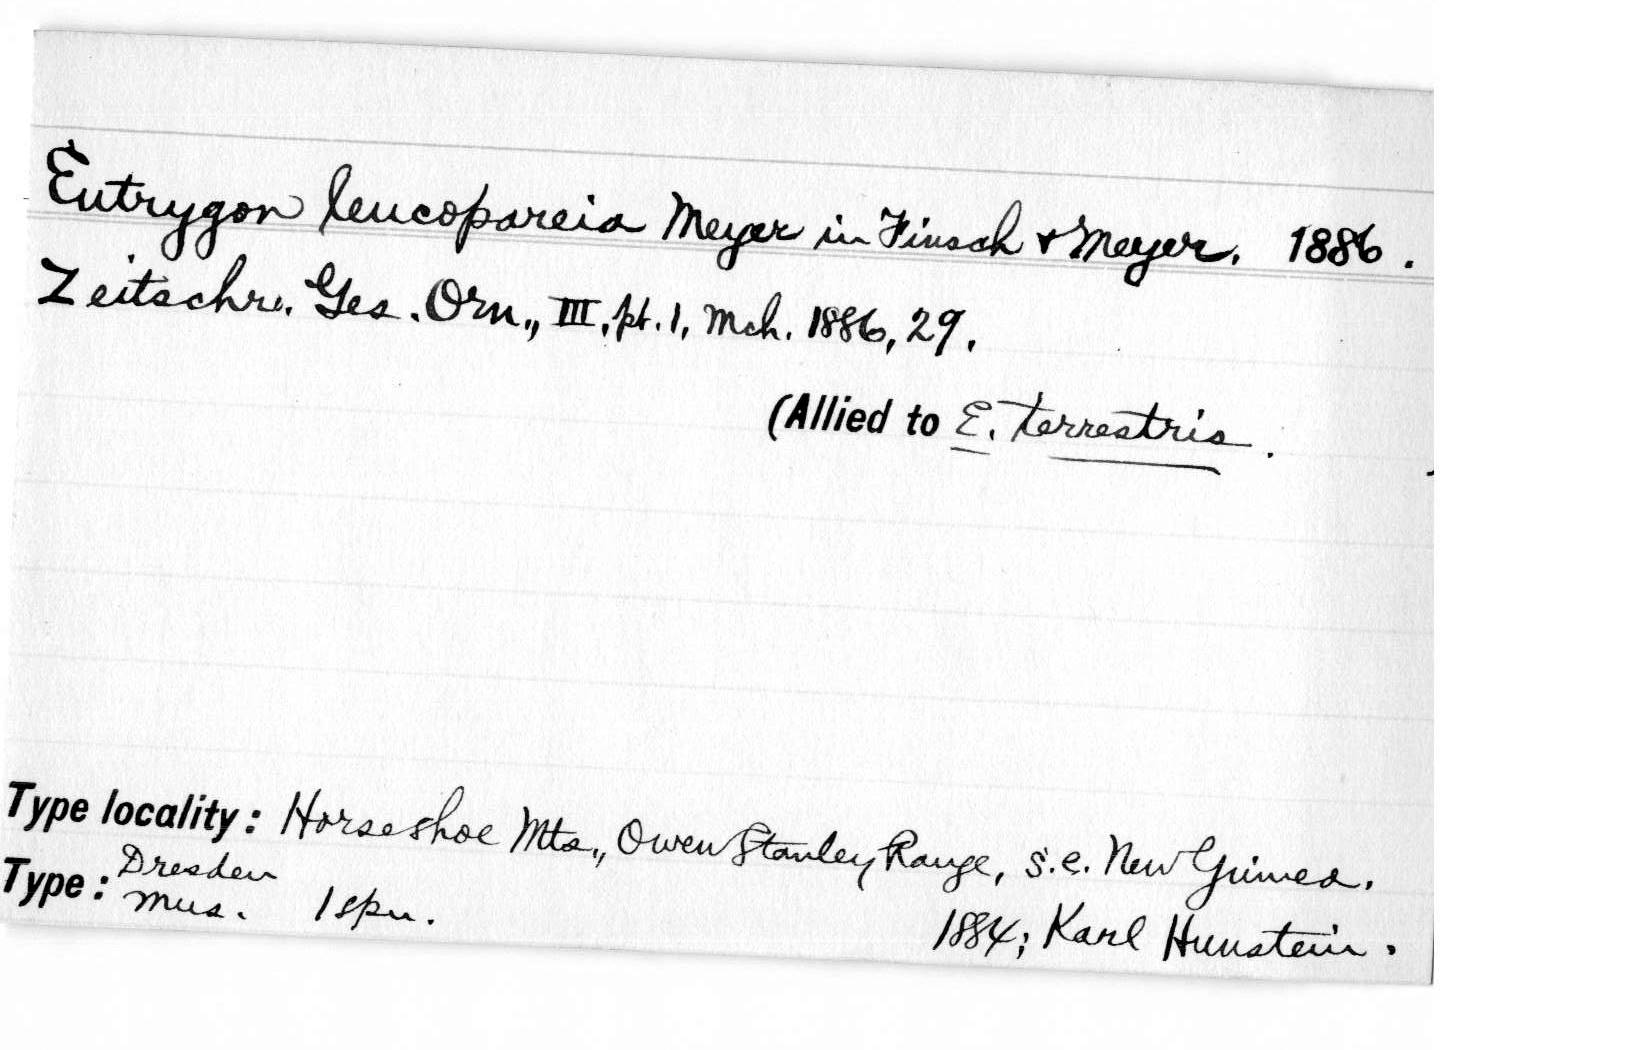 Eutrygon leucopareia Meyer in Finsch & Meyer. 1886.
Zeitschr. Ges. Orn., III, pt. 1, Mch. 1886, 29.
(Allied to E. terrestris.
Type locality: Horseshoe Mts., Owen Stanley Range, s.e. New Guinea.
Type: Dresden Mus. 1 spn. 1884; Karl Hunstein.